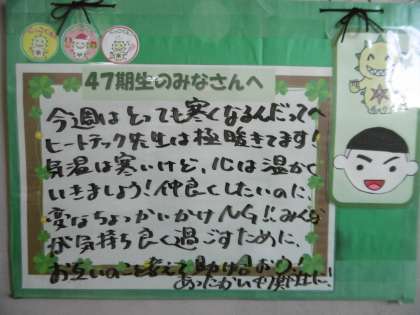 47期生のみなさんへ
今週はとっても寒くなるんだってへ
ヒートテック先生は極暖きてます!
気温は寒いけど、心は温かく
いきましょう!仲良くしたいのに、
変なちょっかいかけNG!!みんな
が気持ち良く過ごすために、
お互いのこと考えて助け合おう!
あったかい47期生に!